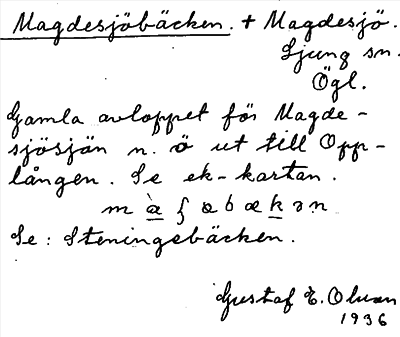 Magdesjöbäcken. + Magdesjö.
Ljung sn.
Ögl.
Gamla avloppet för Magde-
sjösjän n. ö ut till Opp-
lången. Se ek-kartan.
Se: Steningebäcken.
Gustaf E. Olson
1936